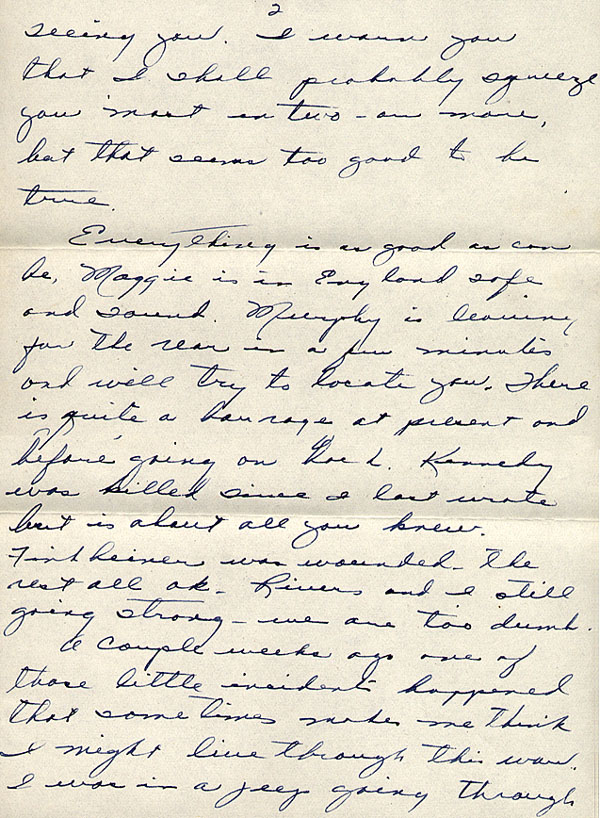 2
seeing you. I warn you
that I shall probably squeeze
you most in two - or more,
but that seems too good to be
true.
Everything is as good as can
be, Maggie is in England safe
and sound. Murphy is leaving
for the rear in a few minutes
and will try to locate you. There
is quite a barrage at present and
before going on Kennedy
was killed since I last wrote
but is about all you knew.
was wounded - The
rest all ok - Rivers and I still
going strong - we are too dumb.
A couple weeks ago one of
those little incidents happened
that sometimes makes me think
I might live through this war.
I was in a jeep going through